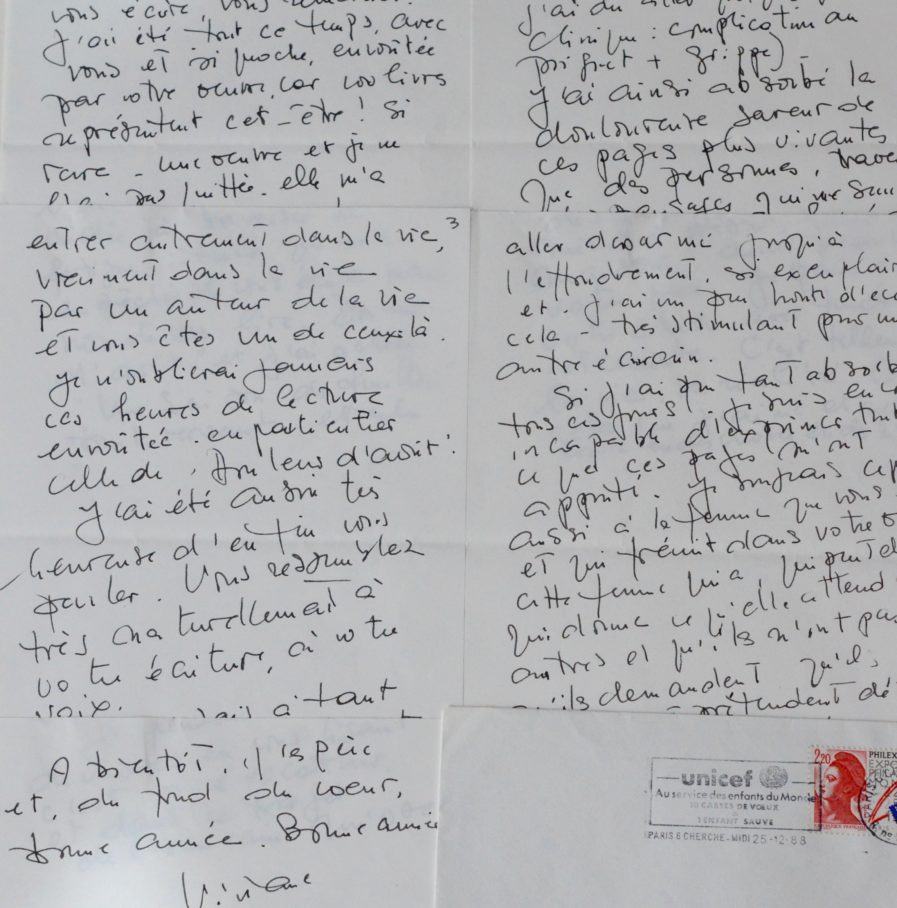 vous écrire, vous
J'ai été tout ce temps, avec
vous et si proche, envoûtée
par votre œuvre, car vos livres
représentent cet-être ! si
rare - une œuvre et je ne
l'ai pas quittée. elle m'a
j'ai dû aller
clinique : complication au
poignet + grippe)
J'ai ainsi absorbé la
douloureuse saveur de
ces pages plus vivantes
que des personnes,
3
entrer autrement dans la vie,
vraiment dans la vie
par un auteur de la vie
et vous êtes un de ceux-là.
Je n'oublierai jamais
ces heures de lecture
envoûtée. en particulier
celle de "Douleurs d'août".
J'ai été aussi très
heureuse d'enfin vous
parler. Vous ressemblez
très naturellement à
votre écriture, à votre
voix. à tant
aller désarmé jusqu'à
l'effondrement, si exemplair
et. J'ai un peu honte d'éc
cela - très stimulant pour un
autre écrivain.
Si j'ai pu tant absorb
tous ces jours ! je suis enc
incapable d'exprimer tout
ce que ces pages m'ont
apporté. Je songeais
aussi à la femme que vous
et qui frémit dans votre
cette femme qui a,
qui donne ce qu'elle attend
autres et qu'ils n'ont pas
qu'ils demandent qu'ils
prétendent
A bientôt, j'espère
et, du fond du cœur,
bonne année. Bonne année
Viviane
unicef
Au service des enfants du Monde
10 CARTES DE VOEUX
1 ENFANT SAUVE
PARIS 6 CHERCHE-MIDI 25-12-88
2,20
PHILEX